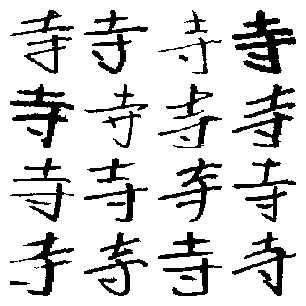 寺寺寺寺
寺寺寺寺
寺寺寺寺
寺寺寺寺